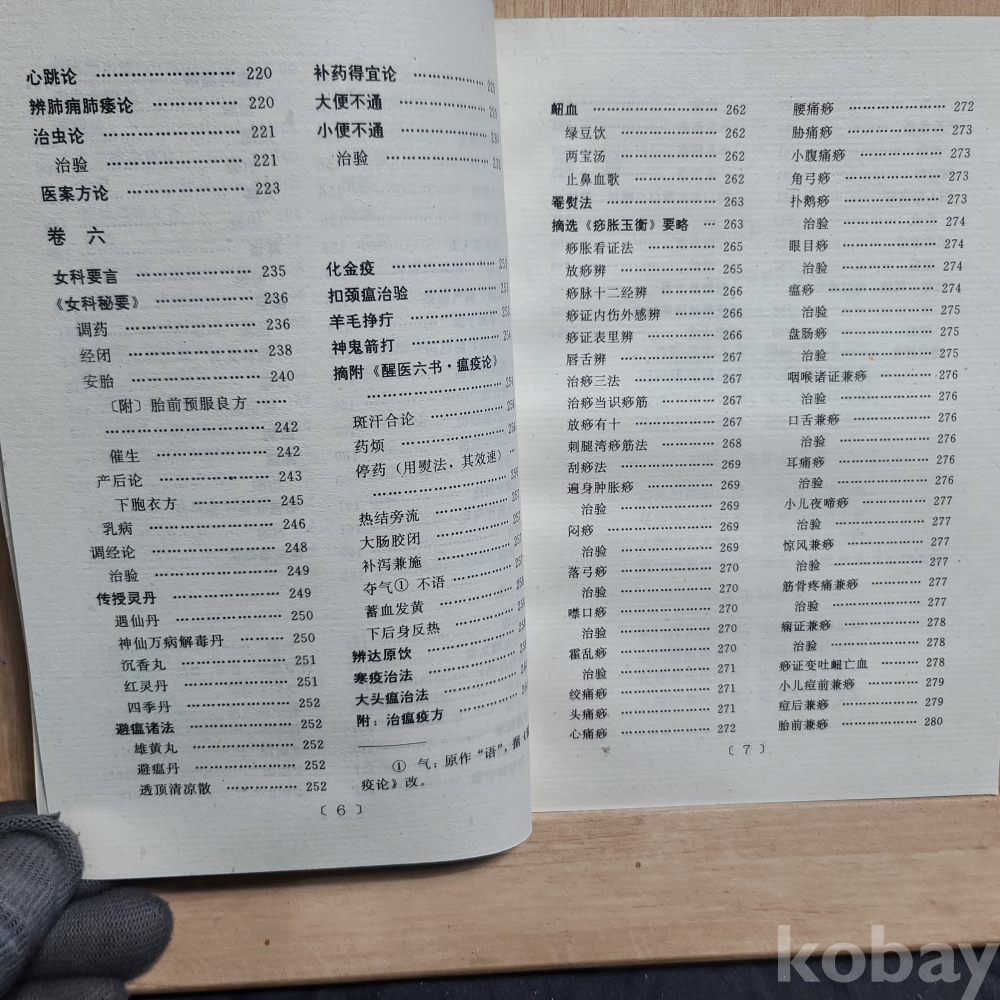 心跳论 …………………… 220
辨肺痈肺痿论 …………… 220
治虫论 …………………… 221
治验 …………………… 221
医案方论 ………………… 223
补药得宜论 …………
大便不通 ……………
小便不通 ……………
治验 ……………
卷 六
女科要言 ………………… 235
《女科秘要》 …………… 236
调药 …………………… 236
经闭 …………………… 238
安胎 …………………… 240
〔附〕胎前预服良方 ……
…………………… 242
催生 …………………… 242
产后论 ………………… 243
下胞衣方 …………… 245
乳病 …………………… 246
调经论 ………………… 248
治验 ………………… 249
传授灵丹 ……………… 249
遇仙丹 ……………… 250
神仙万病解毒丹 …… 250
沉香丸 ……………… 251
红灵丹 ……………… 251
四季丹 ……………… 252
避瘟诸法 ……………… 252
雄黄丸 ……………… 252
避瘟丹 ……………… 252
透顶清凉散 ………… 252
化金疫 ………………
扣颈瘟治验 …………
羊毛挣疔 ……………
神鬼箭打 ……………
摘附《醒医六书·瘟疫论》
………………………
斑汗合论 ……………
药烦 …………………
停药（用熨法，其效速）…
………………………
热结旁流 ……………
大肠胶闭 ……………
补泻兼施 ……………
夺气① 不语 …………
蓄血发黄 ……………
下后身反热 …………
辨达原饮 ……………
寒疫治法 ……………
大头瘟治法 …………
附：治瘟疫方 ………
① 气：原作“语”，据《
疫论》改。
〔 6 〕
衄血 …………………… 262
绿豆饮 ……………… 262
两宝汤 ……………… 262
止鼻血歌 …………… 262
罨熨法 ………………… 263
摘选《痧胀玉衡》要略 … 263
痧胀看证法 ………… 265
放痧辨 ……………… 265
痧脉十二经辨 ……… 266
痧证内伤外感辨 …… 266
痧证表里辨 ………… 266
唇舌辨 ……………… 267
治痧三法 …………… 267
治痧当识痧筋 ……… 267
放痧有十 …………… 267
刺腿湾痧筋法 ……… 268
刮痧法 ……………… 269
遍身肿胀痧 ………… 269
治验 ……………… 269
闷痧 ………………… 269
治验 ……………… 269
落弓痧 ……………… 270
治验 ……………… 270
噤口痧 ……………… 270
治验 ……………… 270
霍乱痧 ……………… 270
治验 ……………… 271
绞痛痧 ……………… 271
头痛痧 ……………… 271
心痛痧 ……………… 272
腰痛痧 ……………… 272
胁痛痧 ……………… 273
小腹痛痧 …………… 273
角弓痧 ……………… 273
扑鹅痧 ……………… 273
治验 ……………… 274
眼目痧 ……………… 274
治验 ……………… 274
瘟痧 ………………… 274
治验 ……………… 275
盘肠痧 ……………… 275
治验 ……………… 275
咽喉诸证兼痧 ……… 276
治验 ……………… 276
口舌兼痧 …………… 276
治验 ……………… 276
耳痛痧 ……………… 276
治验 ……………… 276
小儿夜啼痧 ………… 277
治验 ……………… 277
惊风兼痧 …………… 277
治验 ……………… 277
筋骨疼痛兼痧 ……… 277
治验 ……………… 277
痫证兼痧 …………… 278
治验 ……………… 278
痧证变吐衄亡血 …… 278
小儿痘前兼痧 ……… 279
痘后兼痧 …………… 279
胎前兼痧 …………… 280
〔 7 〕
kobay